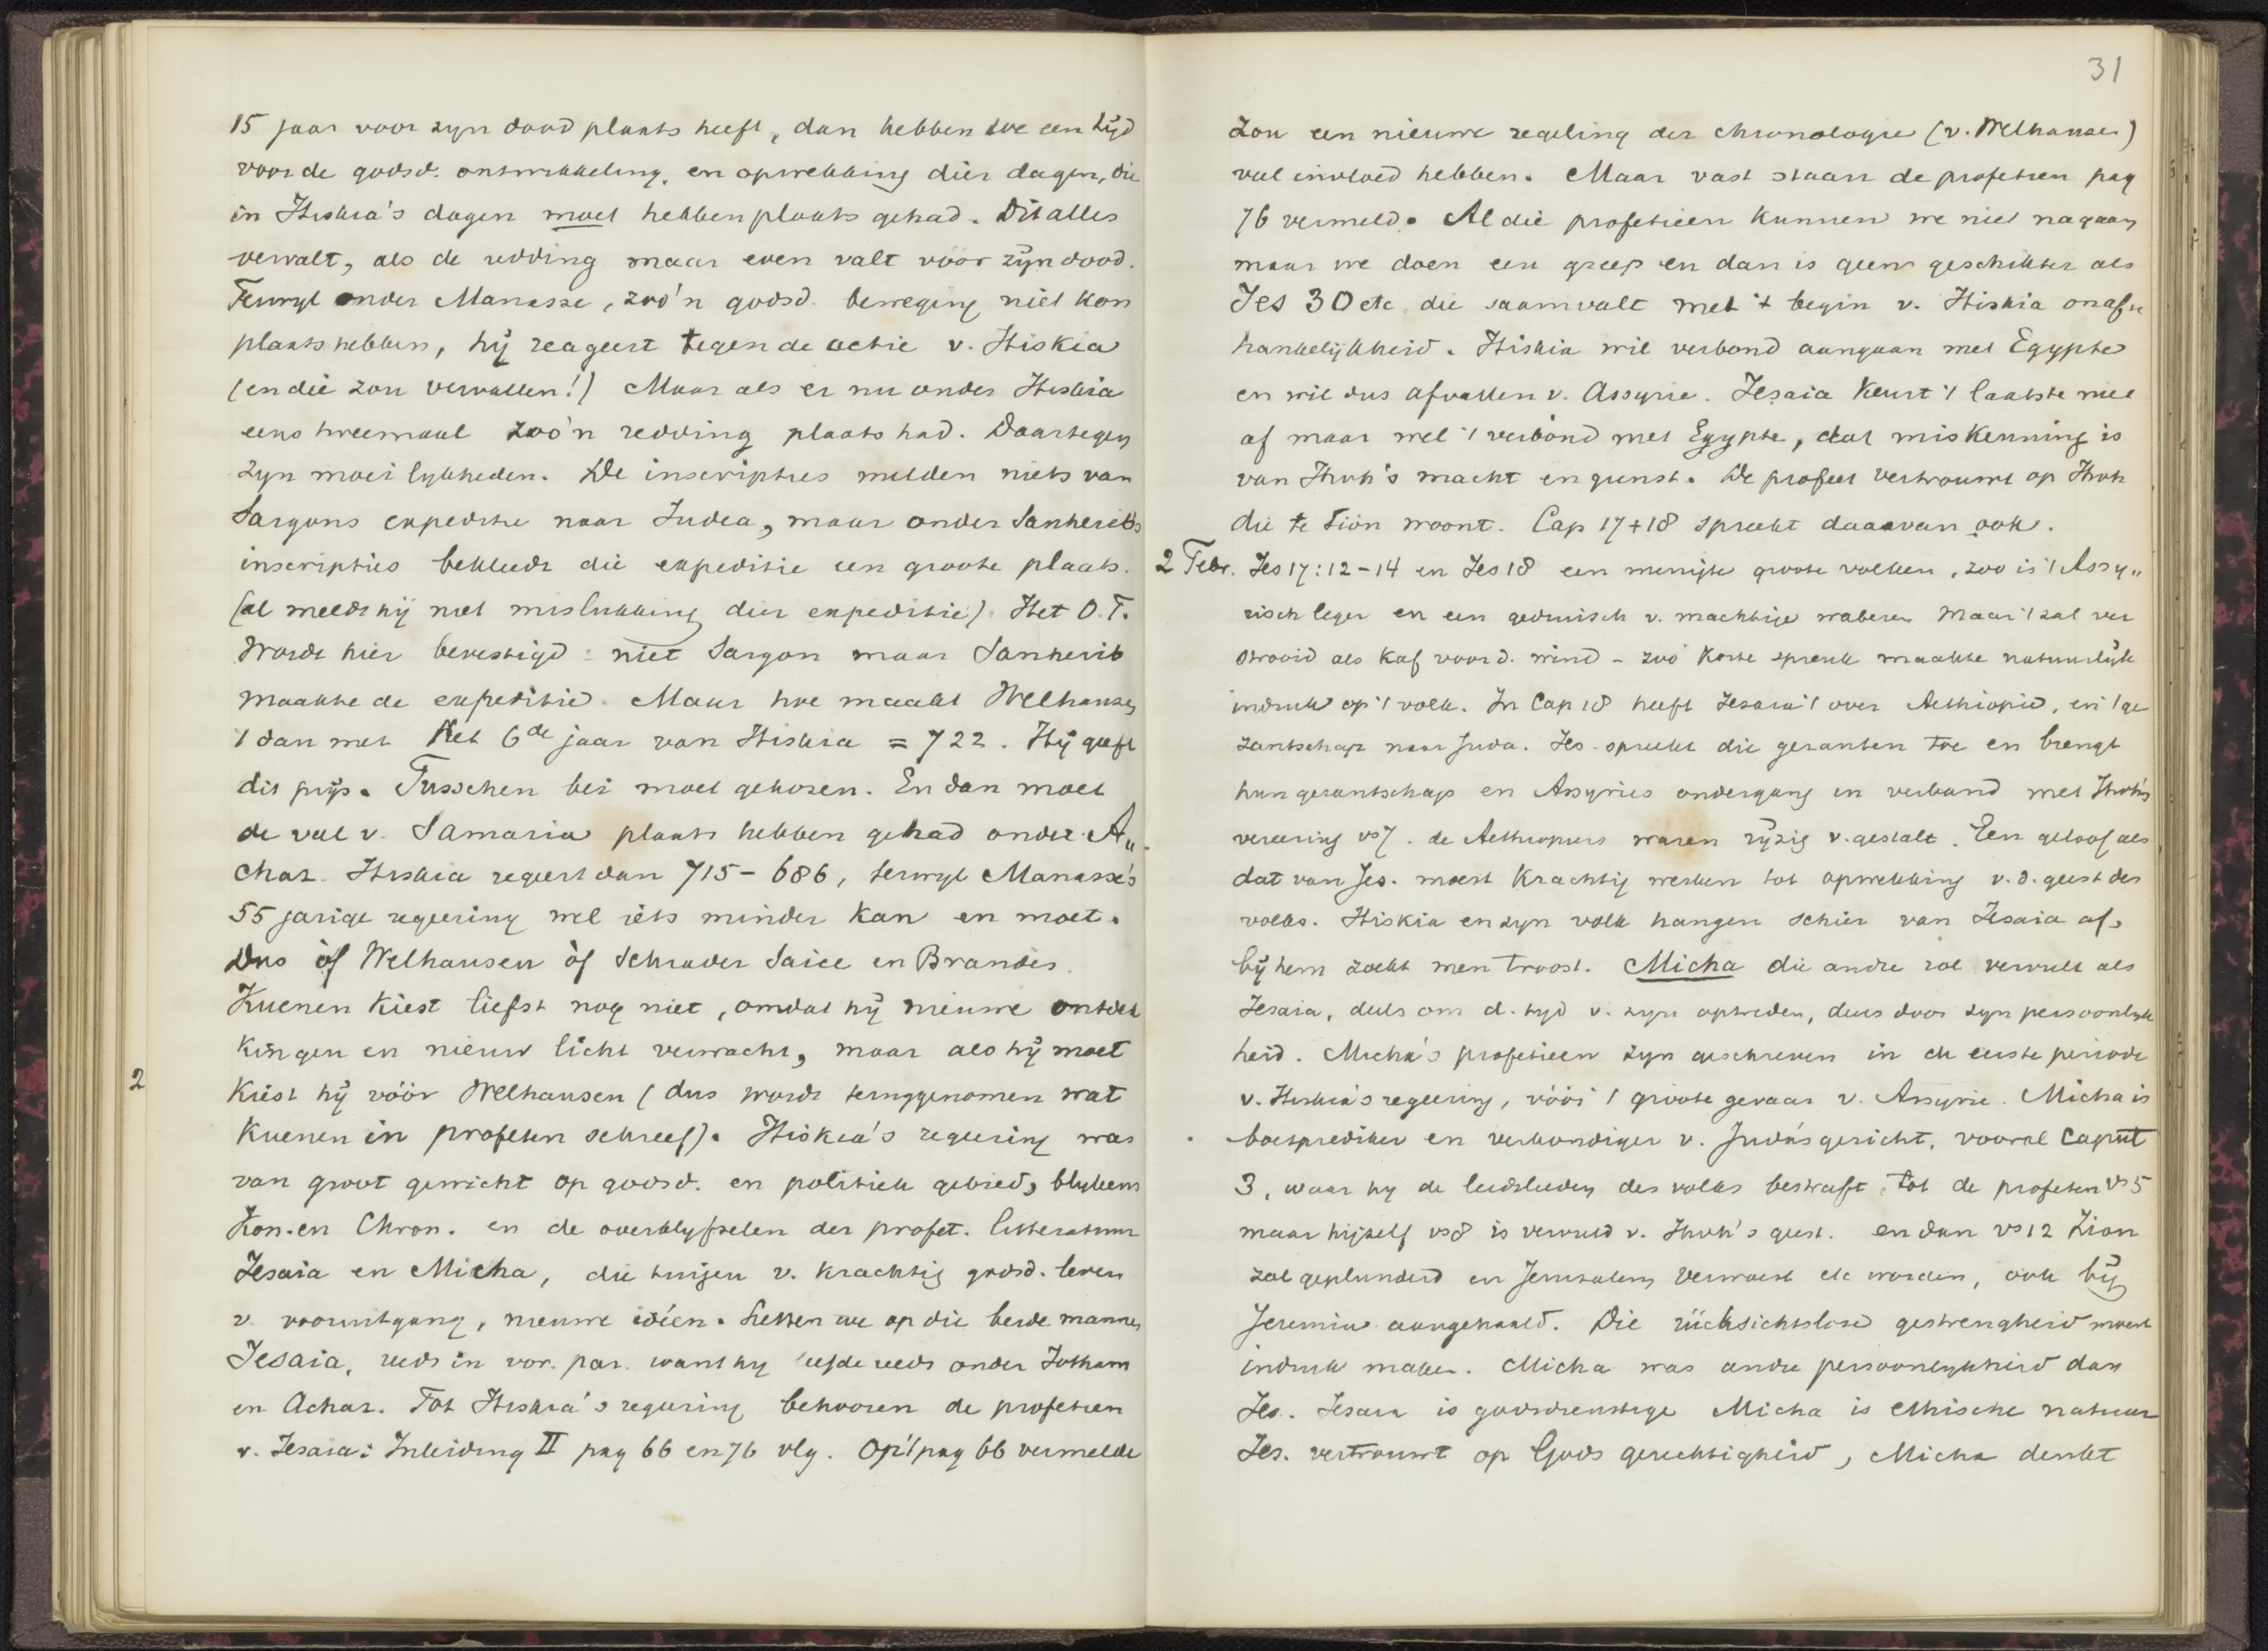 15 jaar voor zyn dood plaats heeft, dan hebben we een tijd
voor de godsd. ontwikkeling, en opwekking dier dagen, die
in Hiskia's dagen moet hebben plaats gehad. Dit alles
vervalt, als de redding maar even valt vóór zijn dood.
Terwyl onder Manasse, zoo'n godsd. beweging niet kon
plaats hebben, hij reageert tegen de actie v. Hiskia
(en die zou vervallen!) Maar als er nu onder Hiskia
eens tweemaal zoo'n redding plaats had. Daartegen
zyn moeilykheden. De inscripties melden niets van
Sargons expeditie naar Judea, maar onder Sanheribs
inscripties bekleedt die expeditie een groote plaats.
(al meldt hij niet mislukking dier expeditie). Het O.T.
wordt hier bevestigd: niet Sargon maar Sanherib
maakte de expeditie. Maar hoe maakt Welhausen
't dan met het 6de jaar van Hiskia = 722. Hij geeft
dit prijs. Tusschen bei moet gekozen. En dan moet
de val v. Samaria plaats hebben gehad onder A„
chaz. Hiskia regeert dan 715-686, terwyl Manasse's
55 jarige regeering wel iets minder kan en moet.
Dus òf Welhausen òf Schrader Saice en Brandes.
Kuenen kiest liefst nog niet, omdat hij nieuwe ontdek
kingen en nieuw licht verwacht, maar als hij moet
2 kiest hij vóór Welhausen (dus wordt teruggenomen wat
Kuenen in profeten schreef). Hiskia's regeering was
van groot gewicht op godsd. en politiek gebied, blykens
Kon. en Chron. en de overblyfselen der profet. litteratuur
Jesaia en Micha, die tuigen v. krachtig godsd. leven
v. vooruitgang, nieuwe idéen. Letten we op die beide mannen
Jesaia, reeds in vor. par. want hy leefde reeds onder Jotham
en Achaz. Tot Hiskia's regeering behooren de profetien
v. Jesaia: Inleiding II pag 66 en 76 vlg. Op 't pag 66 vermelde
31
zou een nieuwe regeling der chronologie (v. Welhausen)
veel invloed hebben. Maar vast staan de profetien pag
76 vermeld. Al die profetieen kunnen we niet nagaan
maar we doen een greep en dan is geen geschikter als
Jes 30 etc. die saamvalt met 't begin v. Hiskia onaf„
hankelijkheid. Hiskia wil verbond aangaan met Egypte
en wil dus afvallen v. Assyrie. Jesaia keurt 't laatste niet
af maar wel 't verbond met Egypte, dat miskenning is
van Jhvh's macht en gunst. De profeet vertrouwt op Jhvh
die te Sion woont. Cap 17+18 spreekt daarvan ook.
2 Febr. Jes 17:12-14 en Jes 18 een menigte groote volken, zoo is 't Assy„
risch leger en een gedruisch v. machtige wateren maar 't zal ver
strooid als kaf voor d. wind - zoo korte spreuk maakte natuurlijk
indruk op 't volk. In Cap 18 heeft Jesaia 't over Aethiopië, en 't ge
zantschap naar Juda. Jes. spreekt die gezanten toe en brengt
hun gezantschap en Assyries ondergang in verband met Jhvh's
vereering vs7. de Aethiopiers waren rijzig v. gestalt. Een geloof als
dat van Jes. moest krachtig werken tot opwekking v. d. geest des
volks. Hiskia en zyn volk hangen schier van Jesaia af,
bij hem zoekt men troost. Micha die andre rol vervult als
Jesaia, deels om d. tyd v. zyn optreden, deels door zyn persoonlyk
heid. Micha's profetieen zyn geschreven in de eerste periode
v. Hiskia's regeering, vóór 't groote gevaar v. Assyrie. Micha is
boetprediker en verkondiger v. Juda's gericht, vooral Caput
3, waar hy de leidslieden des volks bestraft, tot de profeten vs 5
maar hijzelf vs8 is vervuld v. Jhvh's geest. en dan vs 12 Zion
zal geplunderd en Jerusalem verwoest etc worden, ook bij
Jeremia aangehaald. Die rücksichtslose gestrengheid moest
indruk maken. Micha was andre persoonlykheid dan
Jes. Jesaia is godsdienstige Micha is ethische natuur
Jes. vertrouwt op Gods gerechtigheid, Micha denkt